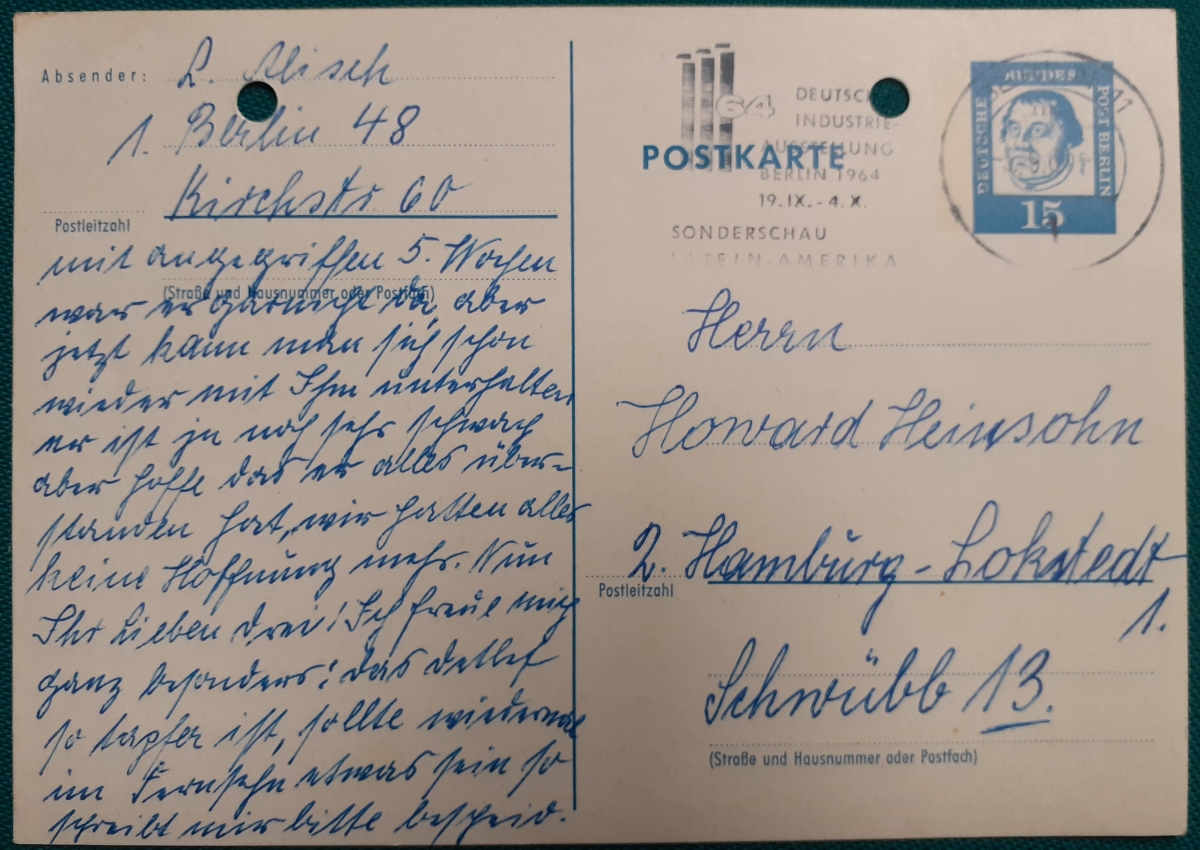 Absender: L. Alisch
1. Berlin 48
Kirchstr 60
Postleitzahl
mit angegriffen 5. Wochen
(Straße und Hausnummer oder Postfach)
war er garnicht da, aber
jetzt kann man sich schon
wieder mit Ihm unterhalten
er ist ja noch sehr schwach
aber hoffe das er alles über-
standen hat, wir hatten alle
keine Hoffnung mehr. Nun
Ihr Lieben drei! Ich freue mich
ganz besonders: das Detlef
so tapfer ist, sollte wiedermal
im Fernsehn etwas sein so
schreibt mir bitte bescheid.
64
DEUTSCHE
INDUSTRIE-
AUSSTELLUNG
BERLIN 1964
19.IX.-4.X.
SONDERSCHAU
LATEIN-AMERIKA
POSTKARTE
DEUTSCHE BUNDESPOST BERLIN
15
Herrn
Howard Heinsohn
2. Hamburg-Lokstedt
Postleitzahl
1.
Schwübb 13.
(Straße und Hausnummer oder Postfach)